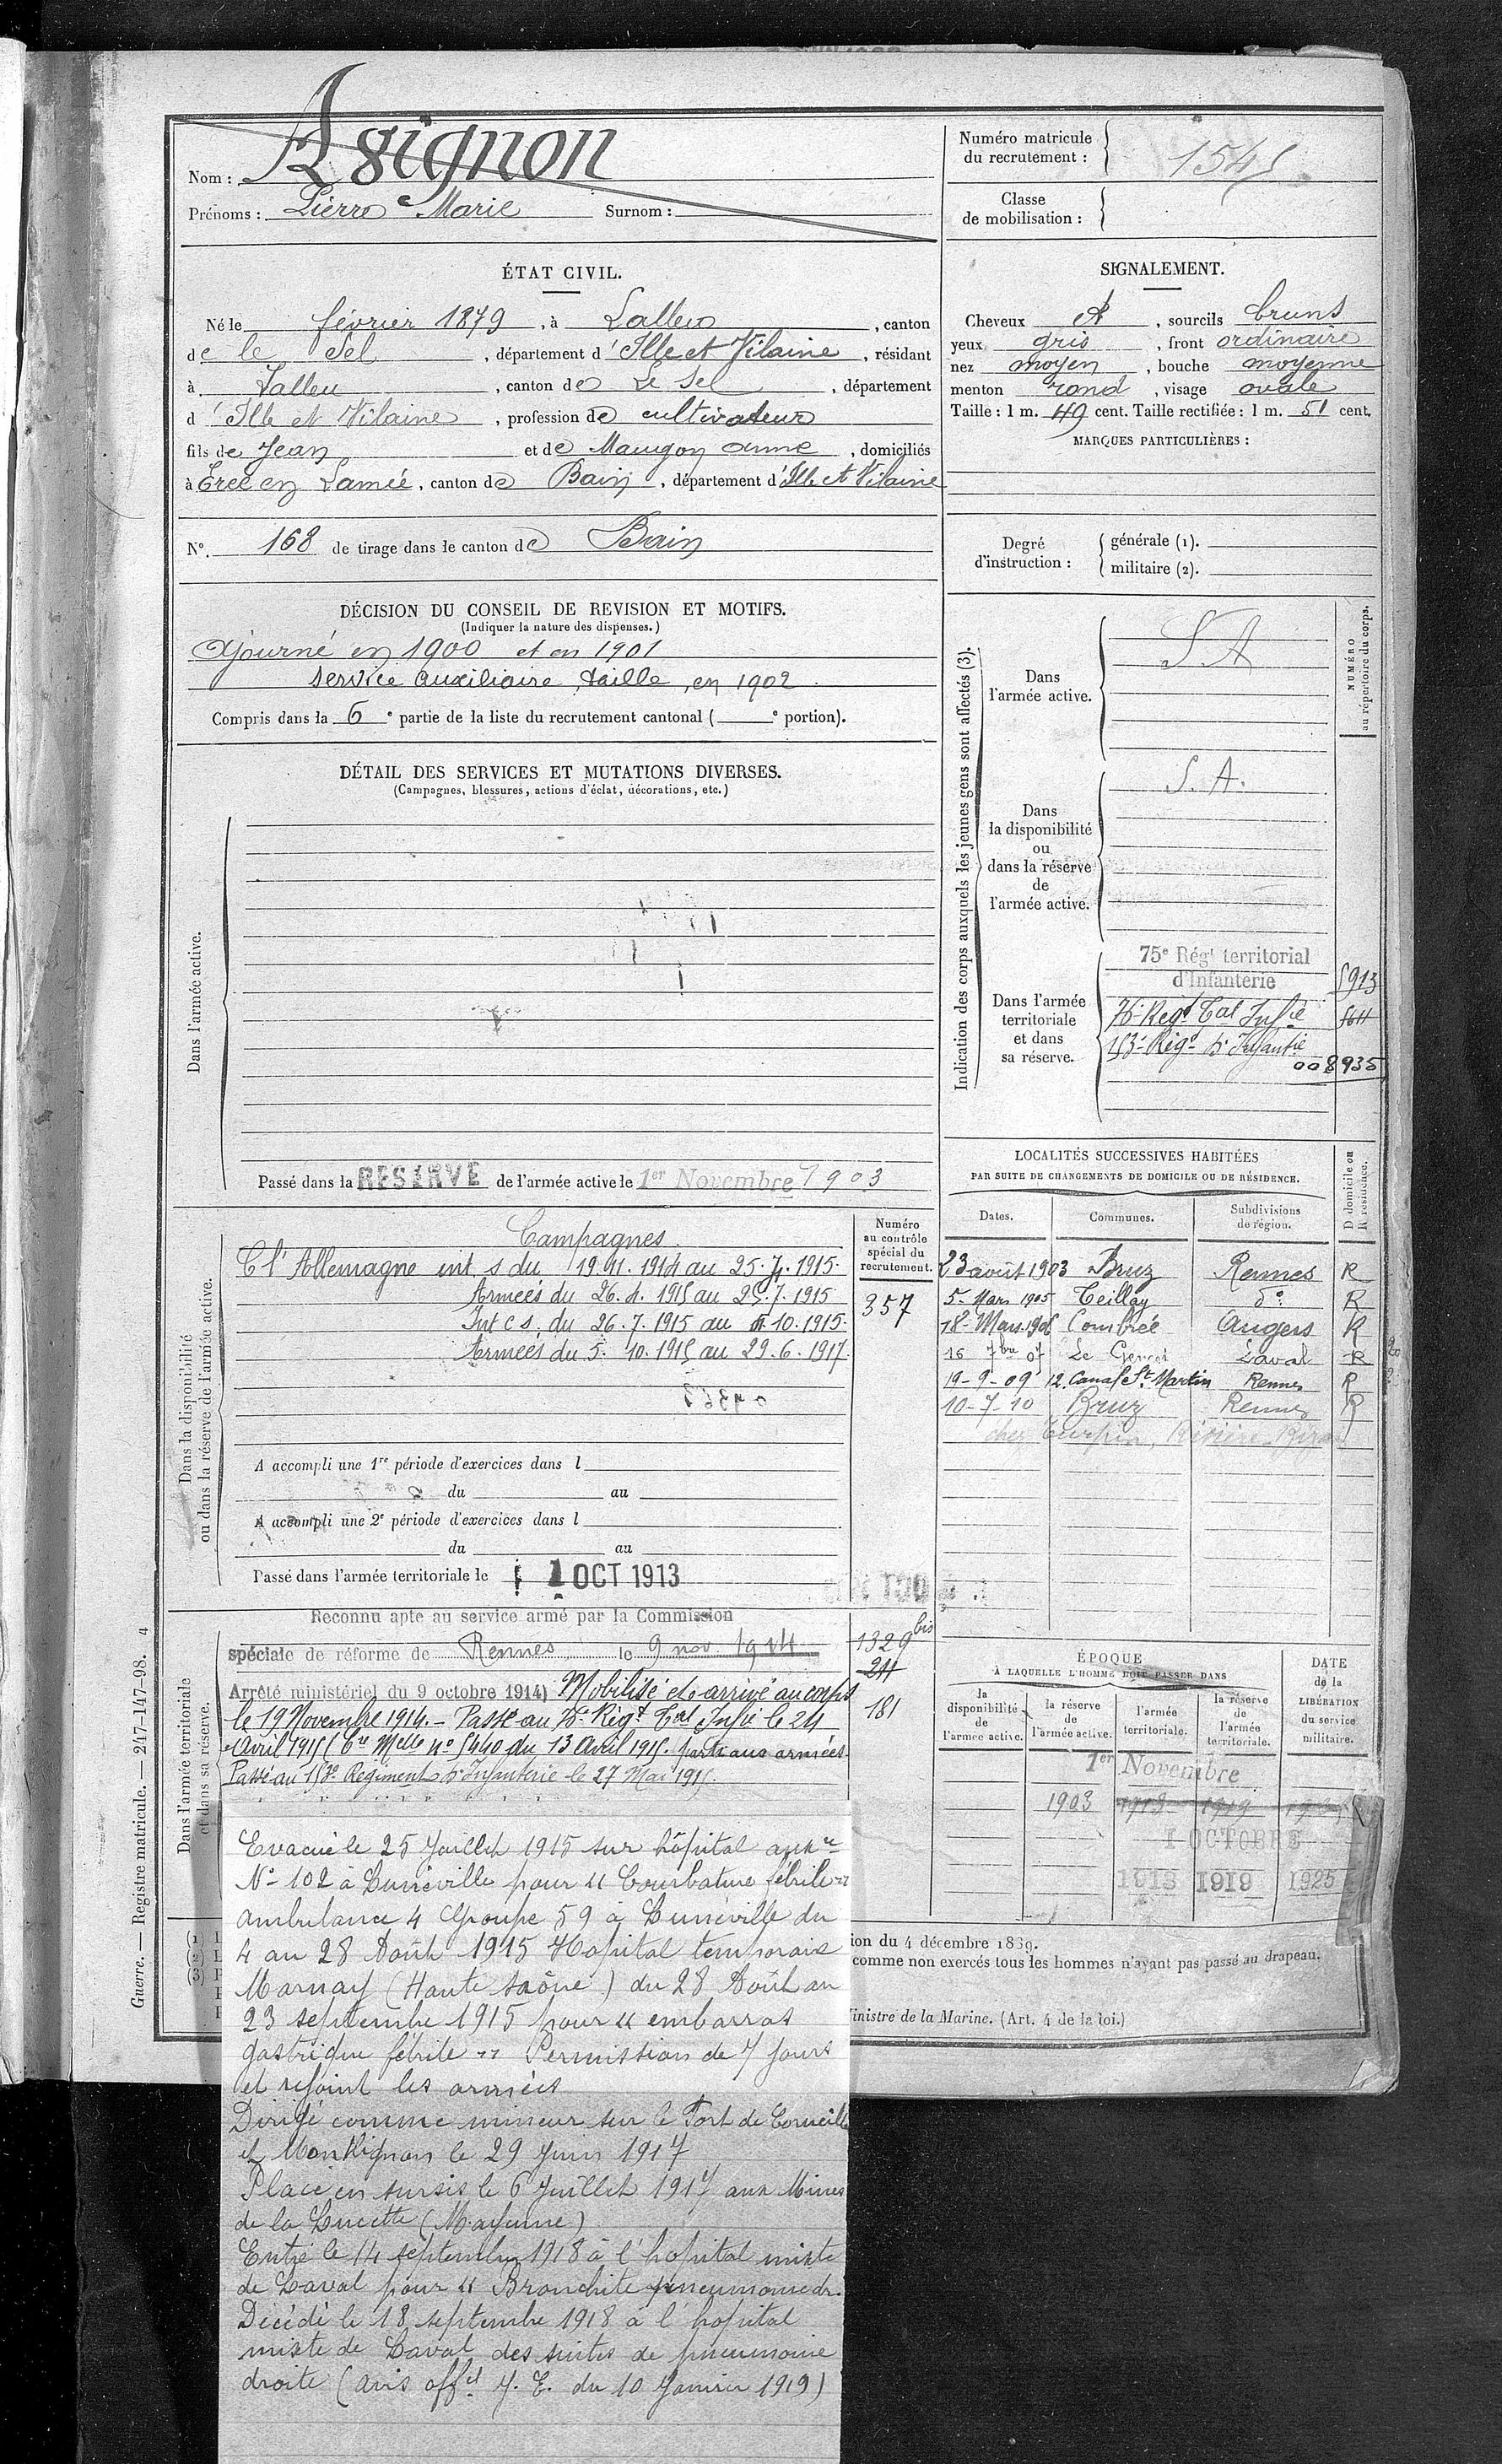 Nom : Asignon
Prénoms : Pierre Marie Surnom :
Numéro matricule
du recrutement : 1545
Classe
de mobilisation :
ÉTAT CIVIL.
Né le février 1879, à Lalleu, canton
de le Sel, département d'Ille et Vilaine, résidant
à Lalleu, canton de Le Sel, département
d'Ille et Vilaine, profession de cultivateur
fils de Jean et de Maugon Anne, domiciliés
à Ercé en Lamée, canton de Bain, département d'Ille et Vilaine
N° 168 de tirage dans le canton de Bain
SIGNALEMENT.
Cheveux et, sourcils bruns
yeux gris, front ordinaire
nez moyen, bouche moyenne
menton rond, visage ovale
Taille : 1 m. 49 cent. Taille rectifiée : 1 m. 51 cent.
MARQUES PARTICULIÈRES :
Degré
d'instruction :
générale (1).
militaire (2).
DÉCISION DU CONSEIL DE REVISION ET MOTIFS.
(Indiquer la nature des dispenses.)
Ajourné en 1900 et en 1901
service auxiliaire, taille, en 1902
Compris dans la 6e partie de la liste du recrutement cantonal ( e portion).
DÉTAIL DES SERVICES ET MUTATIONS DIVERSES.
(Campagnes, blessures, actions d'éclat, décorations, etc.)
Dans l'armée active.
Passé dans la RESERVE de l'armée active le 1er Novembre 1903
Indication des corps auxquels les jeunes gens sont affectés (3).
NUMÉRO
au répertoire du corps.
Dans
l'armée active.
S A
Dans
la disponibilité
ou
dans la réserve
de
l'armée active.
S. A.
Dans l'armée
territoriale
et dans
sa réserve.
75e Régt territorial
d'Infanterie 5913
76e Regt Tal Infie
153e Régt d'Infantie
008935
Dans la disponibilité
ou dans la réserve de l'armée active.
Campagnes
C l'Allemagne int. s du 19.11.1914 au 25.4.1915.
Armées du 26.4.1915 au 25.7.1915
Int c s. du 26.7.1915 au 4.10.1915.
Armées du 5.10.1915 au 29.6.1917.
Numéro
au contrôle
spécial du
recrutement.
357
A accompli une 1re période d'exercices dans l
du au
A accompli une 2e période d'exercices dans l
du au
Passé dans l'armée territoriale le 1 OCT 1913
LOCALITÉS SUCCESSIVES HABITÉES
PAR SUITE DE CHANGEMENTS DE DOMICILE OU DE RÉSIDENCE.
Dates. Communes. Subdivisions de région. D domicile ou R résidence.
23 août 1903 Bruz Rennes R
5 Mars 1905 Teillay do R
18 Mars 1906 Combrée Angers R
16 7bre 07 Le Genest Laval R
19-9-09 12. Canal St Martin Rennes R
10-7-10 Bruz Rennes R
chez Turpin,
Dans l'armée territoriale
et dans sa réserve.
Reconnu apte au service armé par la Commission
spéciale de réforme de Rennes le 9 nov. 1914
Arrêté ministériel du 9 octobre 1914) Mobilisé et arrivé au corps
le 19 Novembre 1914. - Passé au 76e Régt Tal Infie le 24
Avril 1915 (Con Melle no 5440 du 13 Avril 1915. parti aux armées
Passé au 153e Régiment d'Infanterie le 27 Mai 1915.
1329 bis
211
181
ÉPOQUE
À LAQUELLE L'HOMME DOIT PASSER DANS
la disponibilité de l'armée active.
la réserve de l'armée active.
l'armée territoriale.
la réserve de l'armée territoriale.
DATE de la LIBÉRATION du service militaire.
1er Novembre
1903 1913 1919
1 OCTOBRE
1913 1919 1925
Evacué le 25 Juillet 1915 sur hôpital auxre
No 102 à Lunéville pour "Courbature fébrile"
Ambulance 4 Groupe 59 à Lunéville du
4 au 28 Août 1915 Hôpital temporaire
Marnay (Haute Saône) du 28 Août au
23 septembre 1915 pour "embarras
gastrique fébrile" Permission de 7 jours
et rejoint les armées
Dirigé comme mineur sur le Fort de Cormeille
et Montlignon le 29 Juin 1917
Placé en sursis le 6 Juillet 1917 aux Mines
de la Lucette (Mayenne)
Entré le 14 septembre 1918 à l'hôpital mixte
de Laval pour "Bronchite pneumonie dr.
Décédé le 18 septembre 1918 à l'hôpital
mixte de Laval des suites de pneumonie
droite (avis offel Y. E. du 10 Janvier 1919)
(1)
(2)
(3)
ion du 4 décembre 1889.
comme non exercés tous les hommes n'ayant pas passé au drapeau.
inistre de la Marine. (Art. 4 de la loi.)
Guerre. — Registre matricule. — 247-147-98. 4